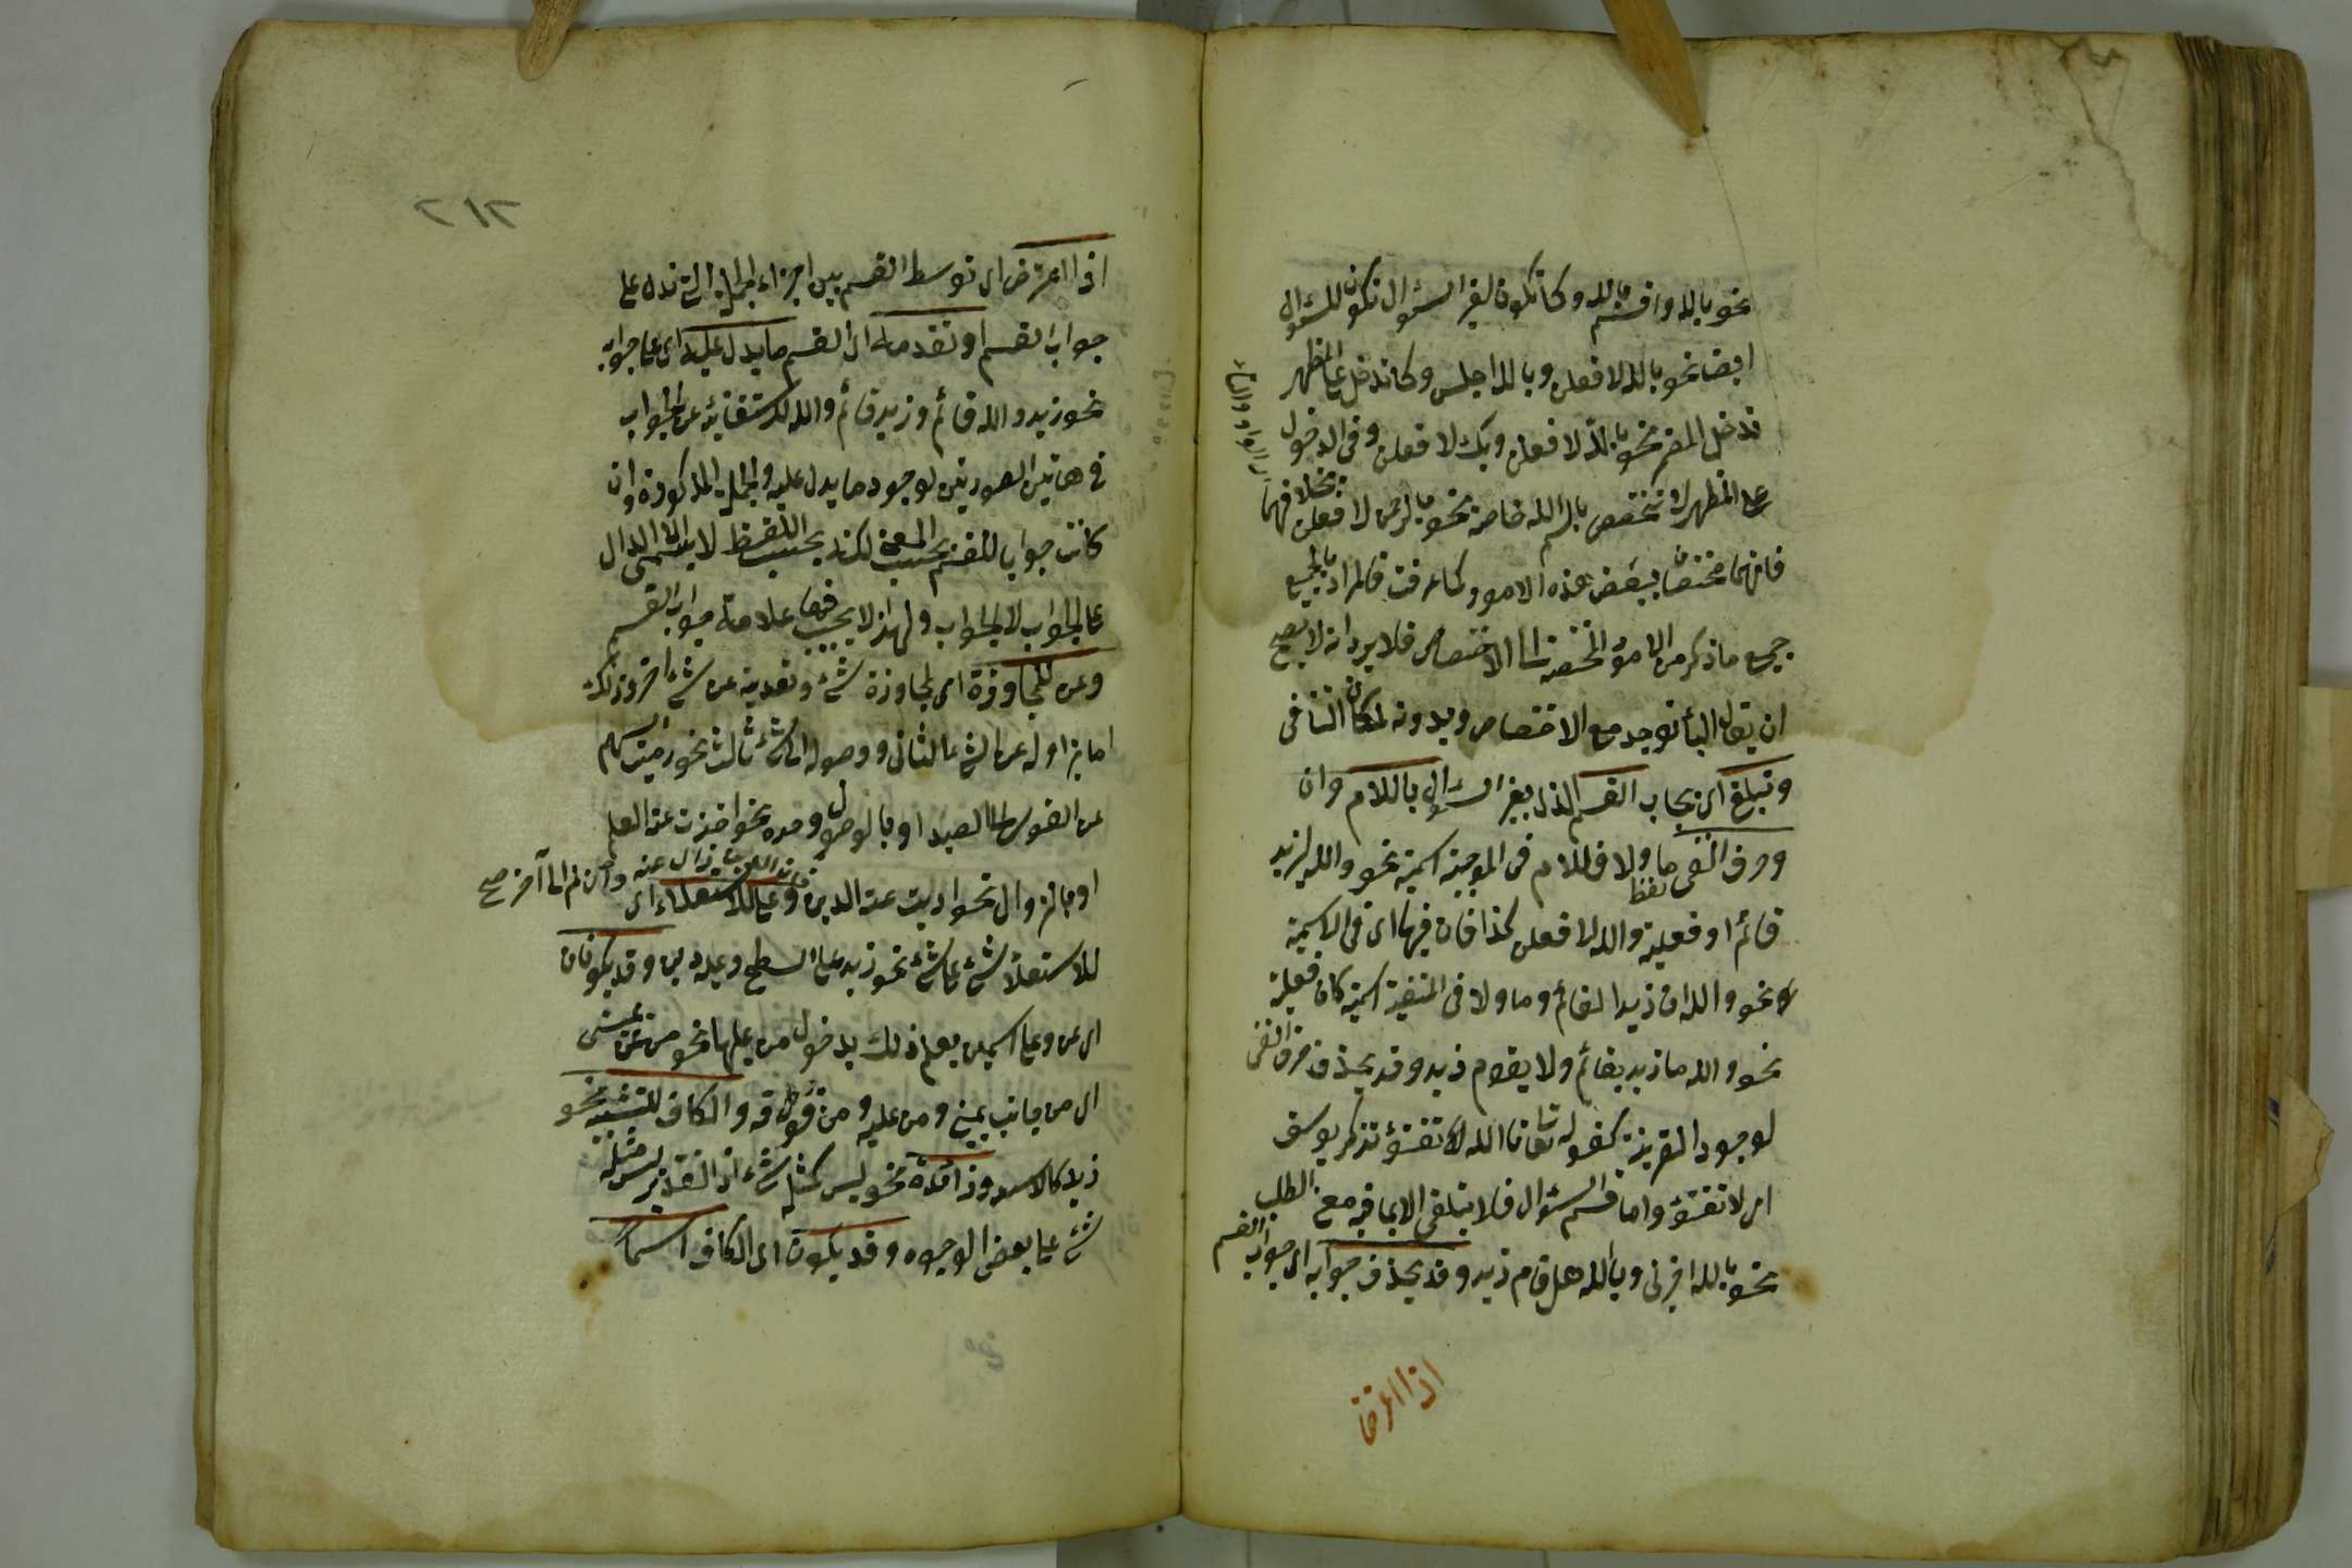 نحو بالله واقسم بالله وكما تكون لغير السؤال تكون للسؤال
ايضا نحو بالله لافعلن وبالله اجلس وكما تدخل على المظهر
تدخل المضمر نحو بالله لافعلن وبك لافعلن وفى الدخول
على المظهر لا تختص باسم الله خاصة نحو بالرحمن لافعلن بخلافهما
اى الواو والتاء
فانهما مختصان ببعض هذه الامور كما عرفت فالمراد بالجميع
جميع ما ذكر من الامور المختصة لا الاختصاص فلا يرد انه لا يصح
ان يقال الباء توجد مع الاختصاص وبدونه لمكان التنافى
وتيلقى اى يجاب القسم الذى بغير السؤال باللام وان
وحرف النفى ما ولا فاللام فى الموجبة اسمية نحو والله لزيد
لفظ
قائم او فعلية والله لافعلن كذا فان فيها اى فى الاسمية
نحو والله ان زيدا لقائم وما ولا فى المنفية اسمية كان فعلية
نحو والله ما زيد بقائم ولا يقوم زيد وقد يحذف حرف النفى
لوجود القرينة كقوله تعا تالله تفتؤ تذكر يوسف
اى لا تفتؤ واما قسم السؤال فلا يتلقى الا بما فيه معنى الطلب
نحو بالله اخبرنى وبالله هل قام زيد وقد يحذف جوابه اى جواب القسم
اذا اعترض
٢١٢
اذا اعترض اى توسط القسم بين اجزاء الجملة التى تدل على
جواب القسم او تقدمه اى القسم ما يدل عليه اى على جوابه
نحو زيد والله قائم وزيد قائم والله لاستغنائه عن الجواب
فى هاتين الصورتين لوجود ما يدل عليه والجملة المذكورة وان
كانت جوابا للقسم بحسب المعنى لكنه بحسب اللفظ لا يسمى الا الدال
على الجواب لا الجواب ولهذا لا يجب فيها علامة جواب القسم
وعن للمجاوزة اى لمجاوزة شئ وتعديته عن شئ آخر وذلك
اما بزواله عن الشئ الثانى ووصوله الى شئ ثالث نحو رميت السهم
عن القوس الى الصيد او بالوصول وحده نحو اخذت عنه العلم
او بالزوال نحو اديت عنه الدين وعلى للاستعلاء اى
فان الدين زال عنه وان لم الى آخر صح
للاستعلاء شئ على شئ نحو زيد على السطح وعليه دين وقد يكونان
اى عن وعلى اسمين يعلم ذلك بدخول من عليهما نحو من عن يمينى
اى من جانب يمينى ومن عليه ومن فوقه والكاف للتشبيه نحو
زيد كالاسد وزائدة نحو ليس كمثله شئ اذ التقدير ليس مثله
شئ على بعض الوجوه وقد يكون اى الكاف اسما